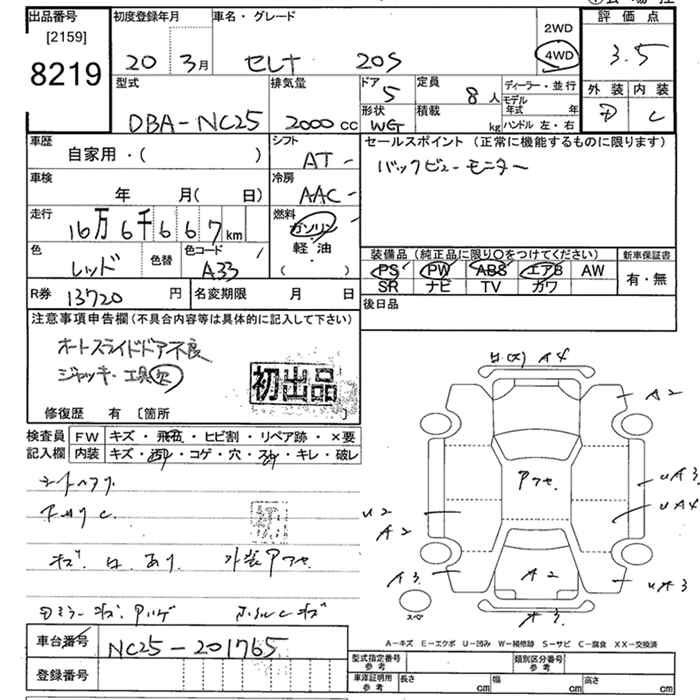 出品番号
[2159]
8219
初度登録年月
20 3月
車名・グレード
セレナ 20S
2WD
4WD
評価点
3.5
外装 内装
D C
型式
DBA-NC25
排気量
2000cc
ドア
5
形状
WG
定員
8人
積載
kg
ディーラー・並行
モデル年式 年
ハンドル 左・右
車歴
自家用・( )
シフト
AT
セールスポイント (正常に機能するものに限ります)
バックビューモニター
車検
年 月( 日)
冷房
AAC
走行
16万6千667km
燃料
ガソリン
軽・油
( )
色
レッド
色替
色コード
A33
装備品 (純正品に限り○をつけてください)
PS PW ABS エアB AW
SR ナビ TV カワ
新車保証書
有・無
R券 13720円
名変期限 月 日
後日品
注意事項申告欄 (不具合内容等は具体的に記入して下さい)
オートスライドドア不良
ジャッキ・工具欠
初出品
修復歴 有 [箇所 ]
検査員記入欄
FW キズ・飛石・ヒビ割・リペア跡・×要
内装 キズ・汚れ・コゲ・穴・スレ・キレ・破レ
シートヘタリ
キズ 凹 あり 外装アセ
Dミラーキズ・ハゲ ホイルCキズ
凹(X) A4
A2
アセ
UA3
UA4
U2
A2
A3
A2
UA3
A3
スペア
A-キズ E-エクボ U-凹み W-補修跡 S-サビ C-腐食 XX-交換済
車台番号 NC25-201765
登録番号
型式指定番号
参考
類別区分番号
参考
車庫証明用
参考
長さ cm
幅 cm
高さ cm